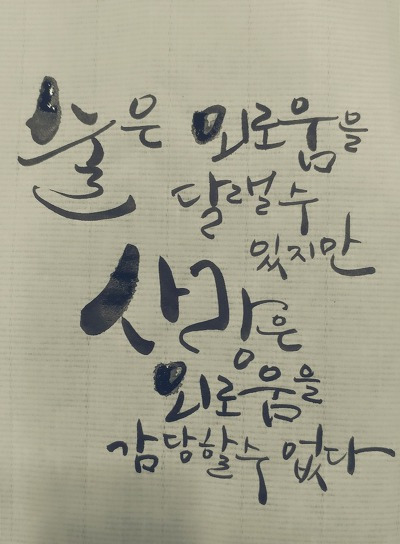 술은 외로움을
달랠 수
있지만
사랑은
외로움을
감당할 수 없다